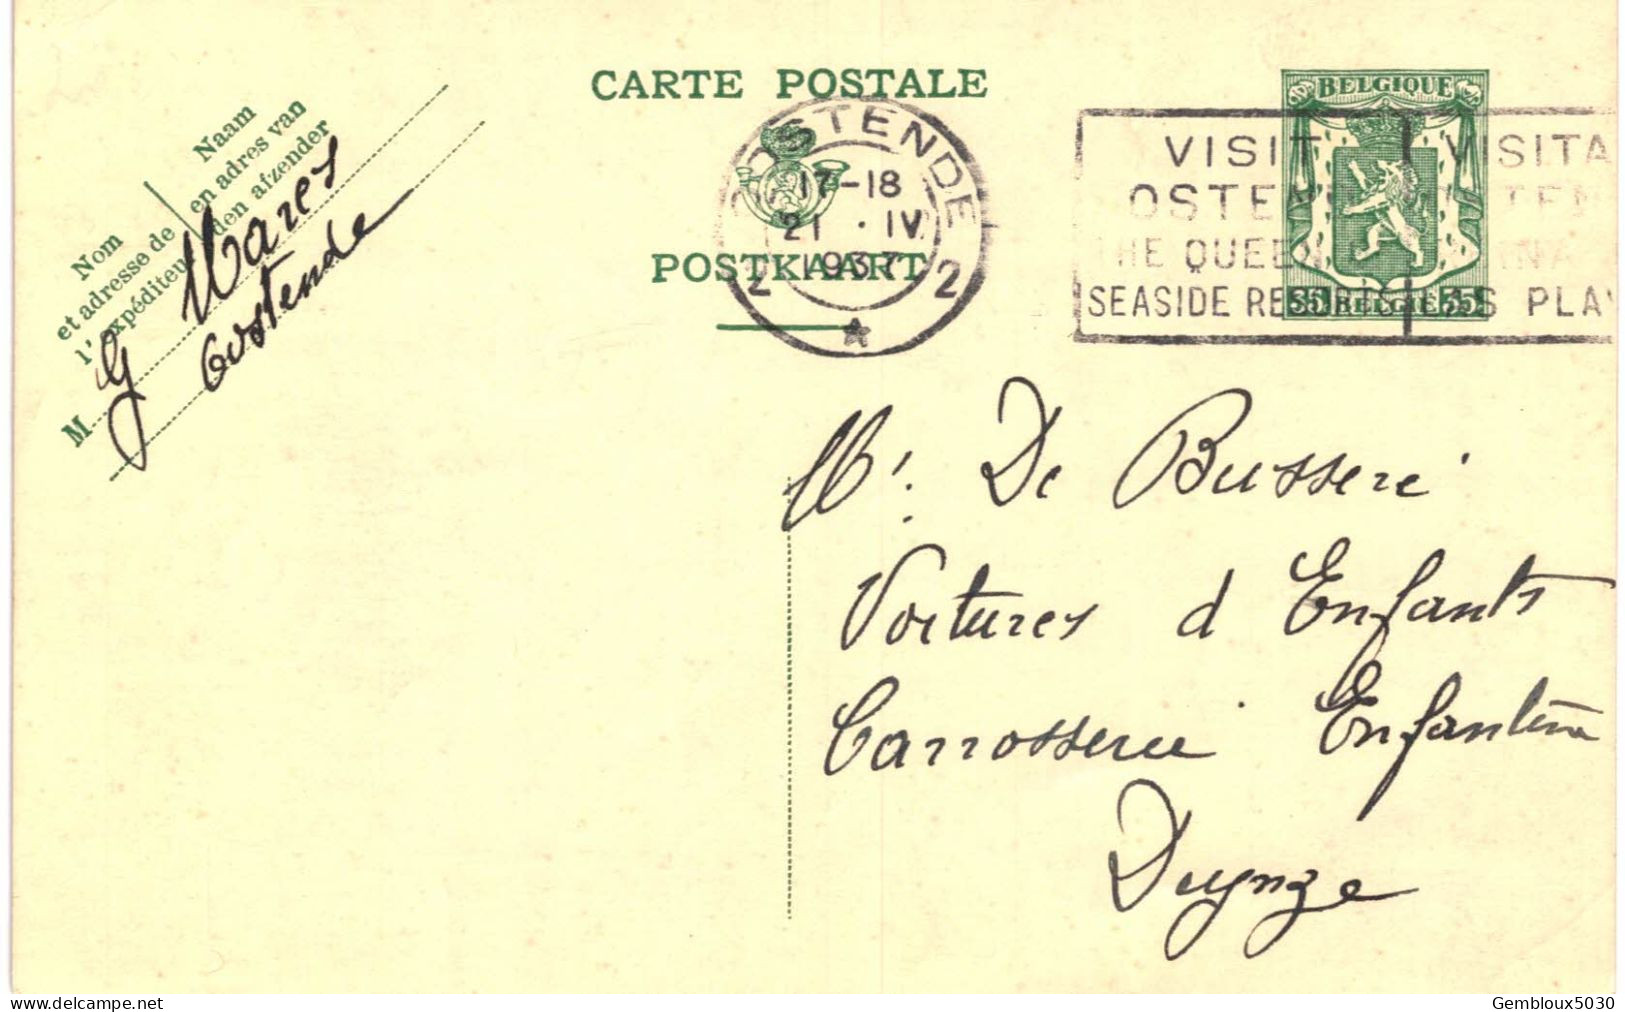 CARTE POSTALE
POSTKAART
Nom
et adresse de
l'expéditeur
Naam
en adres van
den afzender
M
G Mares
Oostende
OOSTENDE
17-18
21 · IV
1937
2 2
BELGIQUE
35 BELGIË 35
VISIT
OSTEN
THE QUEEN
SEASIDE RESORTS
VISITA
TEN
INA
AS PLAY
Mr. De Bussere
Voitures d Enfants
Carrosserie Enfantine
Duynze
Gembloux5030